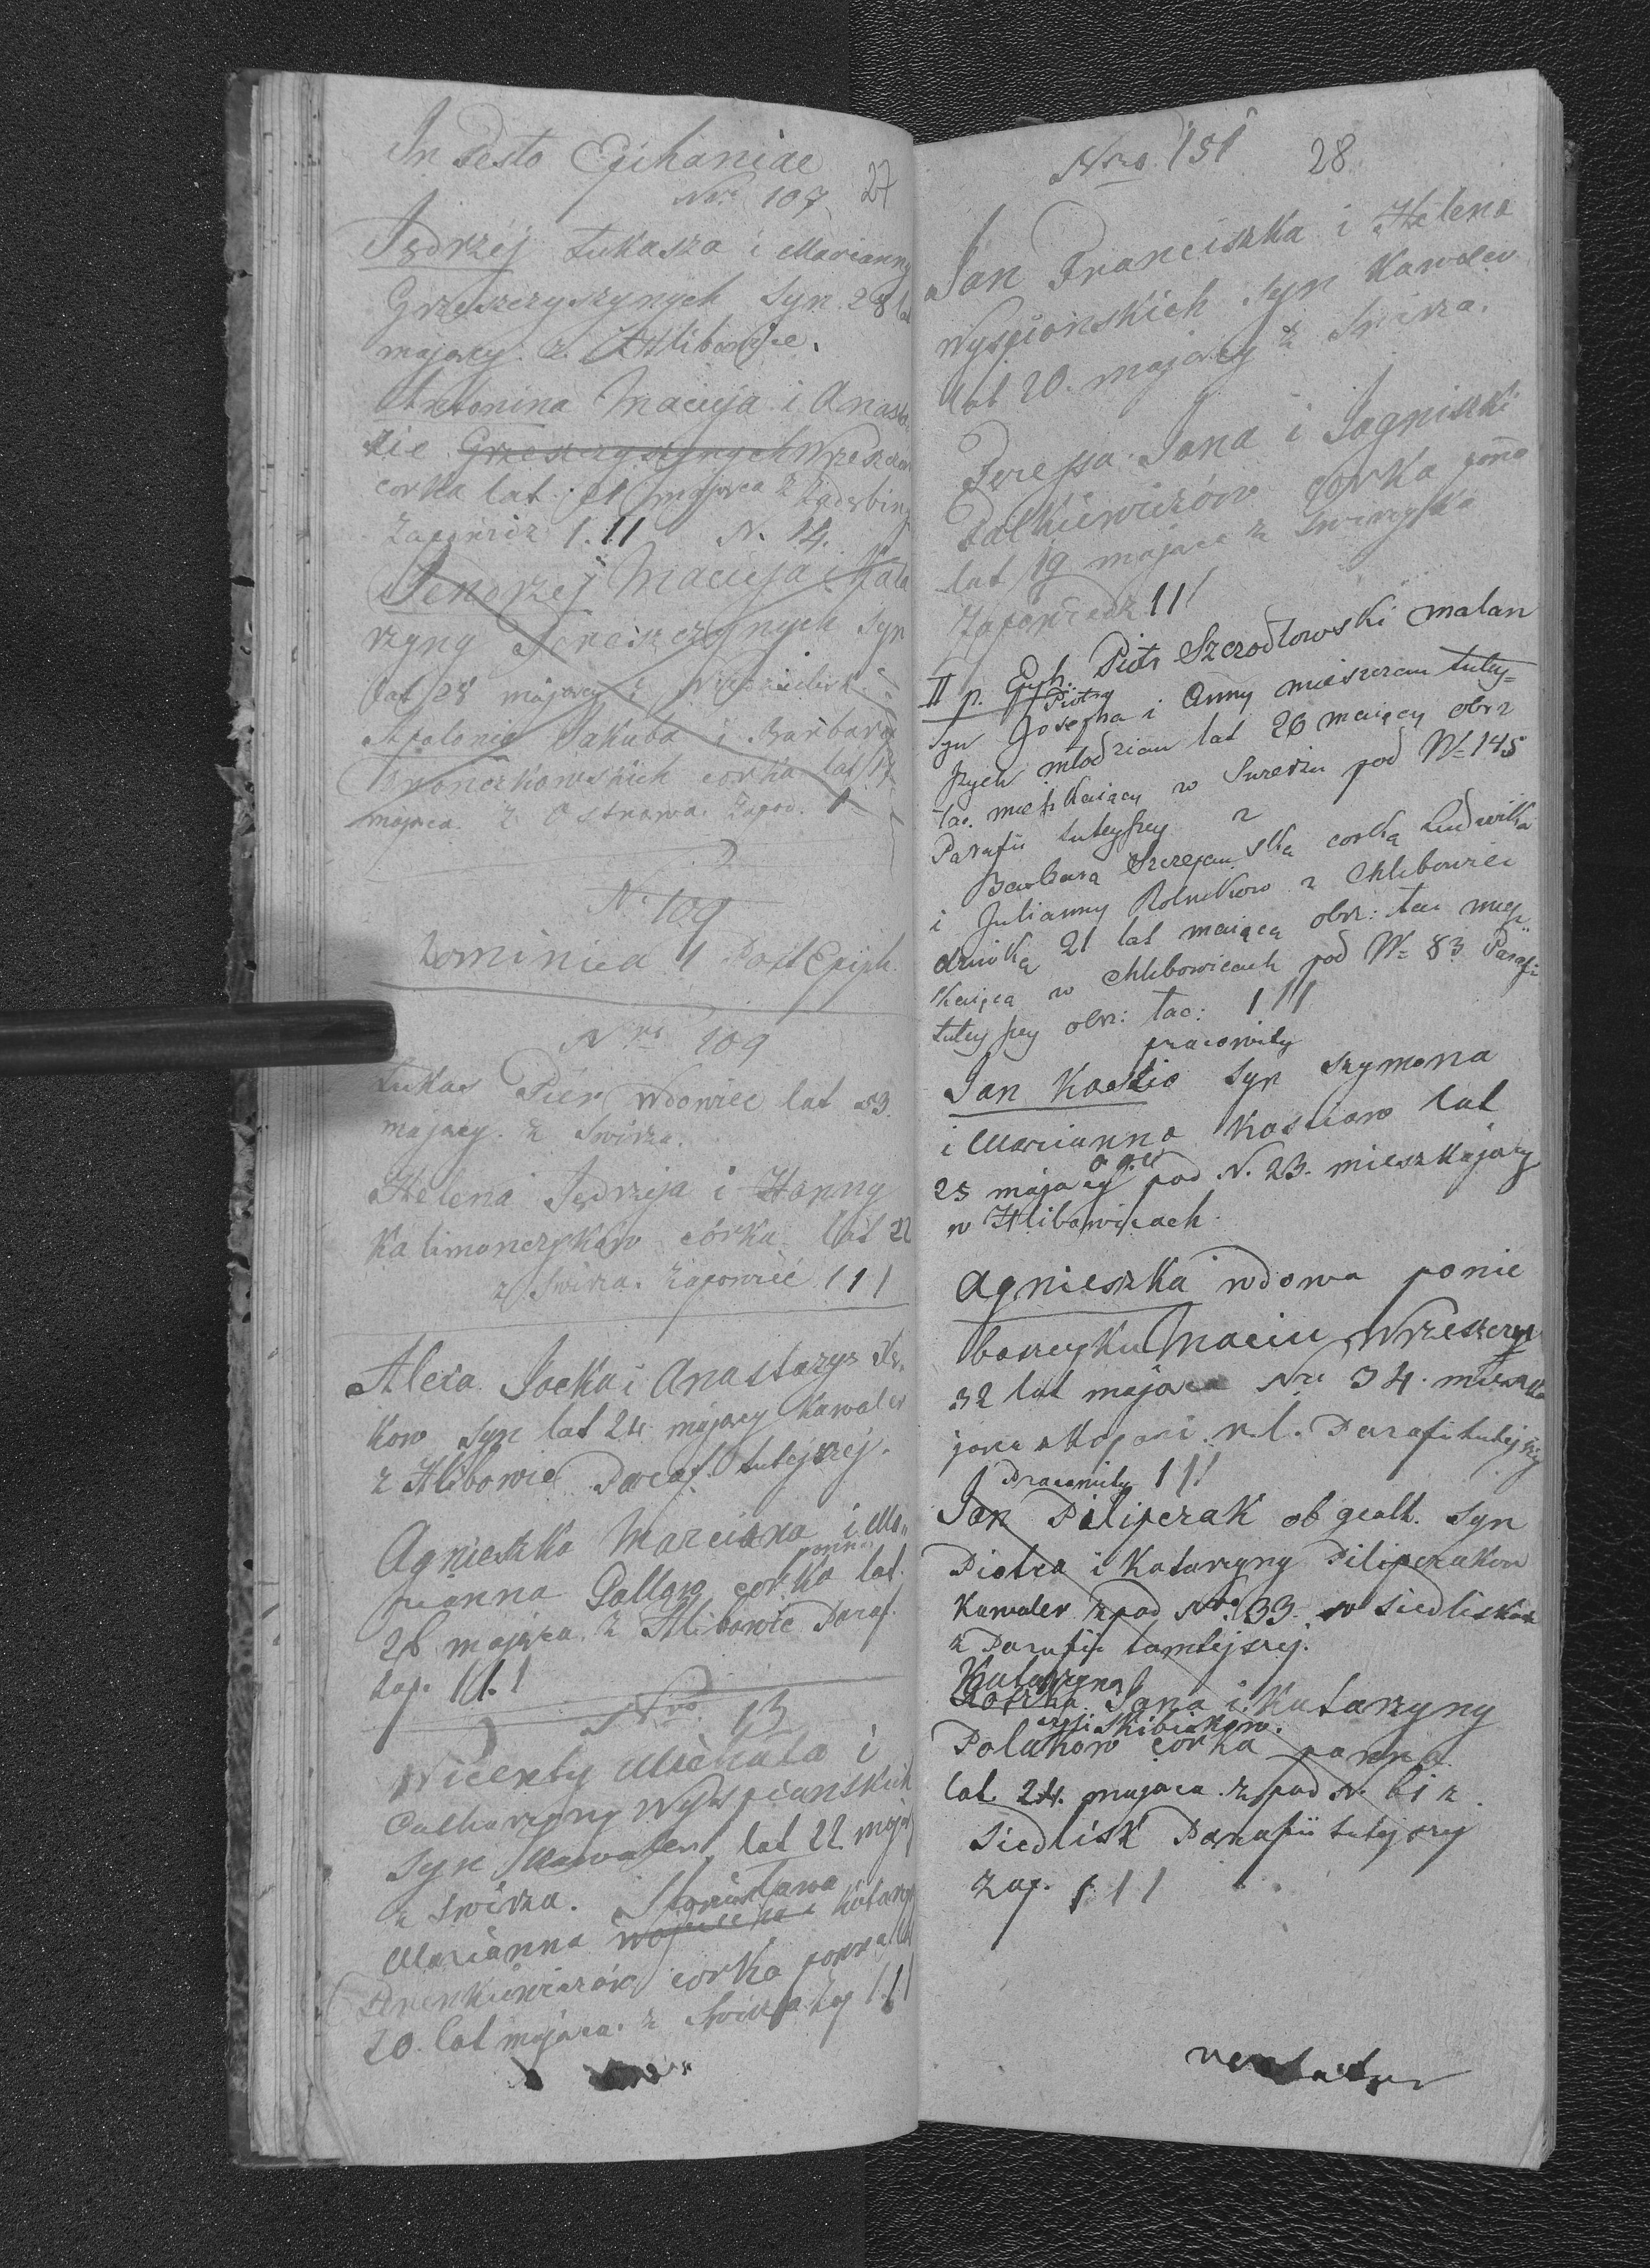 In Festo Epihaniae
Nro 107 27
Jędrzej Łukasza i Marianny
Grzeszczyszynych Syn 28 lat
mający z Hlibowice.
Antonina Macieja i Anasta
zie Grzeszczyszynych Wrzeszcz
corka lat 21 mająca z
Zapowiedz 1.11 N. 14.
Jendrzej Macieja i Kata
rzyny Syn
lat 28 mający z
Apolonia Jakuba i Barbary
corka lat 17
mająca z Ostrowa. Zapod. 1
N. 109
Dominica 1 Post Epiph.
Nro 109
Łukas Pier wdowiec lat 53.
mający z Swirza.
Helena Jędrzeja i Hanny
Kalimonczykow córka lat 22
z Swirza. Zapowieć 111
Alexa Jacka i Anastazyz
kow syn lat 24 mający kawaler
z Hlibowic Paraf. tutejszej.
Agnieszka Marcina i Ma
panna
rianna Gallow corka lat
26 mająca z Hlibowic Paraf.
zap. 111
Nro 13
Wicenty Michała i
Catharzyny Wyspianskich
Syn Kawaler lat 22 mają
z Swirza. Stanisława
Marianna Wojciecha i Katarz
corka panna
20. lat mająca z Swirza Zap 111
Nro 151 28.
Jan Franciszka i Helena
Wyspianskich syn Kawaler
lat 20. mający z Swirza.
Teressa Jana i Jagniszki
Palkiewiczów corka panna
lat 19 mająca z Swirzyska
Zapowiedz 111
II p. Eph. Piotr Szczodłowski malan
Piotra
Syn Josepha i Anny mieszczan tutey=
szych młodzian lat 26 maiący obrz
łac. mieszkaiący w Swirzu pod N= 145
Parafii tuteyszey z
Barbarą Szczepanską corką Ludwika
i Julianny Rolników z Chlibowic
dziwką 21 lat maiącą obrz: łac miesz
kaiącą w Chlibowicach pod N= 83 Parafii
tuteyszey obrz: łac: 111
pracowity
Jan Kostio Syn Szymona
i Marianna Kostiow lat
25 mający pod N. 23. mieszkający
w Hlibowicach.
Agnieszka wdowa ponie
boszczyku Maciu Wrzeszcz
32 lat mająca Nro 34. mieszka
jąca r. l. Parafii tutejszej
Pracowity 111
Jan Pilipczak ob gealt. syn
Piotra i Katarzyny Pilipczakow
kawaler z pod Nro 33. w Siedliskach
z Parafii tamtejszej.
Katarzyna
Jana i Katarzyny
czyli Skibinkow.
Polakow corka panna
lat. 24. mająca z pod N. 61 z
Siedlisk Parafii tutejszy
Zap. 111
vertatur